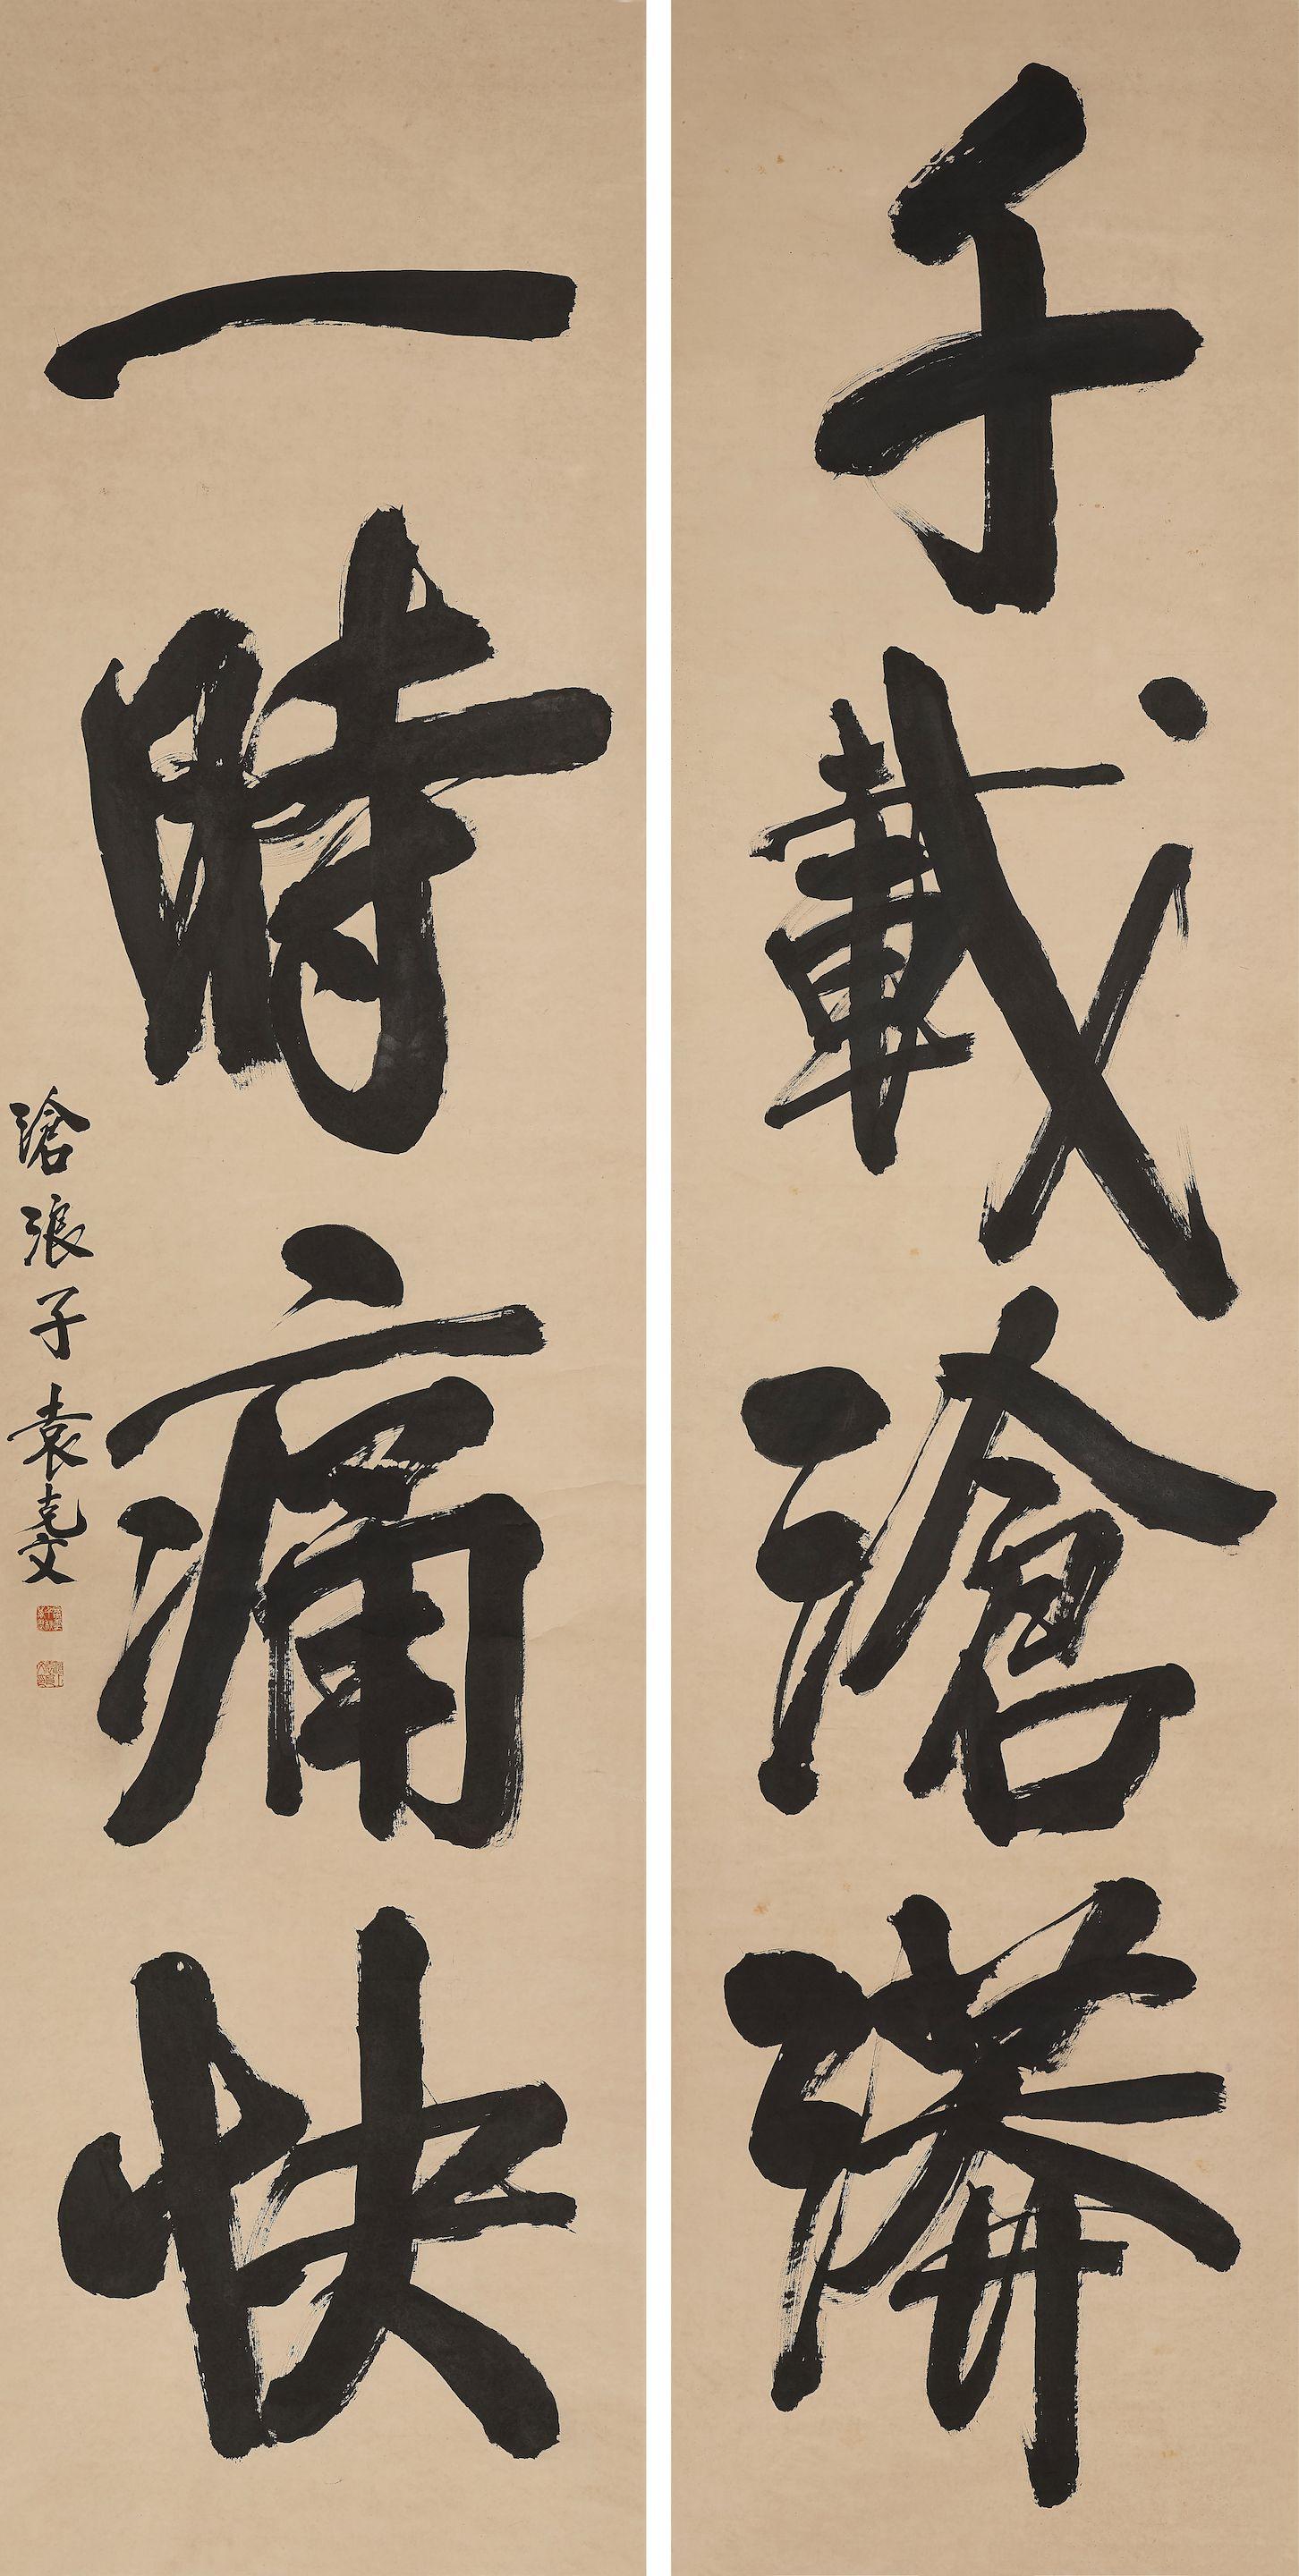 千載滄漭
一時痛快
滄浪子袁克文